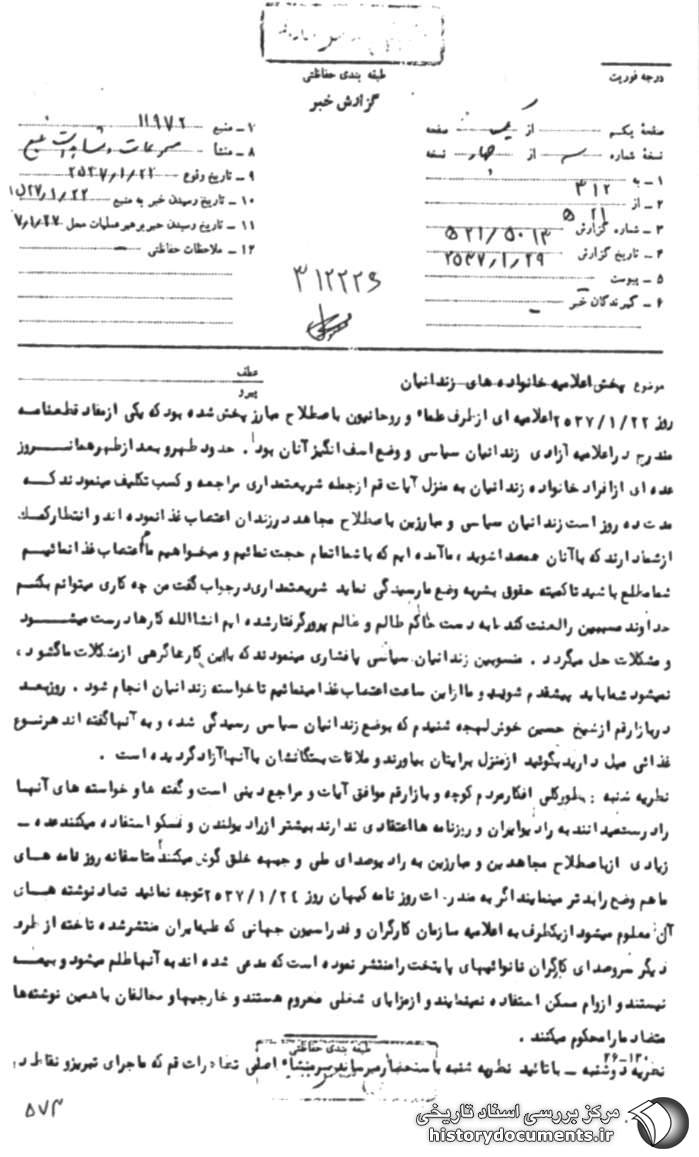 طبقه بندی حفاظتی
گزارش خبر
درجه فوریت
صفحهٔ یکم از یک صفحه
نسخهٔ شماره سه از چهار نسخه
۱ ـ به ۳۱۲
۲ ـ از ۵۲۱
۳ ـ شماره گزارش ۵۲۱/۵۰۱۳
۴ ـ تاریخ گزارش ۲۵۳۷/۱/۲۹
۵ ـ پیوست
۶ ـ گیرندگان خبر
۷ ـ منبع ۱۱۹۷۲
۸ ـ منشا
۹ ـ تاریخ وقوع ۲۵۳۷/۱/۲۲
۱۰ ـ تاریخ رسیدن خبر به منبع ۳۷/۱/۲۲
۱۱ ـ تاریخ رسیدن خبر برهبر عملیات محل ۷/۱/۲۷
۱۲ ـ ملاحظات حفاظتی
۳۱۲۲۲۶
موضوع پخش اعلامیه خانواده های زندانیان
عطف
پیرو
روز ۲۵۳۷/۱/۲۲ اعلامیه ای از طرف علماء و روحانیون باصطلاح مبارز پخش شده بود که یکی از مفاد قطعنامه
مندرج در اعلامیه آزادی زندانیان سیاسی و وضع اسف انگیز آنان بود. حدود ظهر و بعد از ظهر همان روز
عده ای از افراد خانواده زندانیان به منزل آیات قم ازجمله شریعتمداری مراجعه و کسب تکلیف مینمودند که
مدت ده روز است زندانیان سیاسی و مبارزین باصطلاح مجاهد در زندان اعتصاب غذا نموده اند و انتظار کمک
از شما دارند که با آنان همصدا شوید ، ما آمده ایم که با شما اتمام حجت نمائیم و میخواهیم ما اعتصاب غذا نمائیم
شما مطلع باشید تا کمیته حقوق بشر به وضع ما رسیدگی نماید شریعتمداری در جواب گفت من چه کاری میتوانم بکنم
خداوند مسببین را لعنت کند ما به دست حاکم ظالم و ظالم پرور گرفتار شده ایم انشاالله کارها درست میشود
و مشکلات حل میگردد . منسوبین زندانیان سیاسی پافشاری مینمودند که با این کارها گرهی از مشکلات ما گشوده
نمیشود شما باید پیشقدم شوید و ما از این ساعت اعتصاب غذا مینمائیم تا خواسته زندانیان انجام شود . روز بعد
در بازار قم از شیخ حسین خوش لهجه شنیدم که بوضع زندانیان سیاسی رسیدگی شده و به آنها گفته اند هر نوع
غذائی میل دارید بگوئید از منزل برایتان بیاورند و ملاقات بستگانشان با آنها آزاد گردیده است .
نظریه شنبه : بطورکلی افکار مردم کوچه و بازار قم موافق آیات و مراجع دینی است و گفته ها و خواسته های آنها
را درست میدانند به رادیو ایران و روزنامه ها اعتقادی ندارند بیشتر از رادیو لندن و مسکو استفاده میکنند عده ـ
زیادی از باصطلاح مجاهدین و مبارزین به رادیو صدای ملی و جبهه خلق گوش میکنند متاسفانه روزنامه های
ما هم وضع را بدتر مینمایند اگر به مندرجات روزنامه کیهان روز ۲۵۳۷/۱/۲۴ توجه نمائید تضاد نوشته های
آن معلوم میشود از یکطرف به اعلامیه سازمان کارگران و فدراسیون جهانی که علیه ایران منتشر شده تاخته از طرف
دیگر سروصدای کارگران نانوائیهای پایتخت را منتشر نموده است که مدعی شده اند به آنها ظلم میشود و بیمه
نیستند و از وام مسکن استفاده نمینمایند و از مزایای شغلی محروم هستند و خارجیها و مخالفان با همین نوشته های
متضاد ما را محکوم میکنند .
نظریه دوشنبه ـ با تائید نظریه شنبه باستحضار میرساند سرمنشاء اصلی تظاهرات قم که ماجرای تبریز و نقاط دی
۲۶-۱۳۰
طبقه بندی حفاظتی
۵۷۳
مرکز بررسی اسناد تاریخی
historydocuments.ir